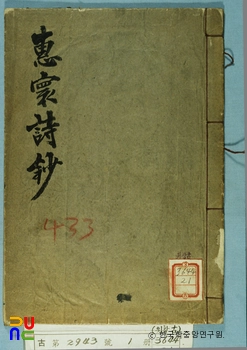 惠寰詩鈔
433
古 第 2943 號 1
ⓒ 한국학중앙연구원